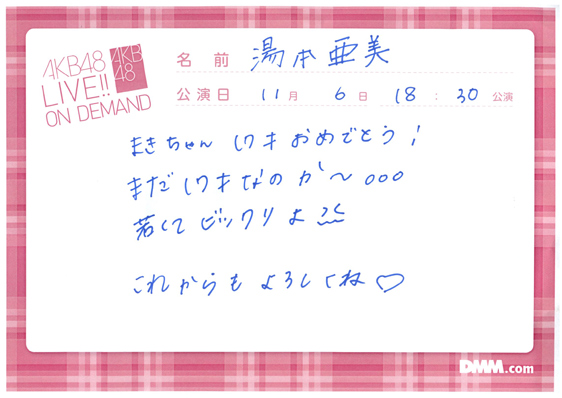 AKB48
LIVE!!
ON DEMAND
AKB
48
名前 湯本亜美
公演日 11月 6日 18:30 公演
まきちゃん 17才 おめでとう!
まだ 17才なのか〜ooo
若くてビックリよ
これからもよろしくね♡
DMM.com